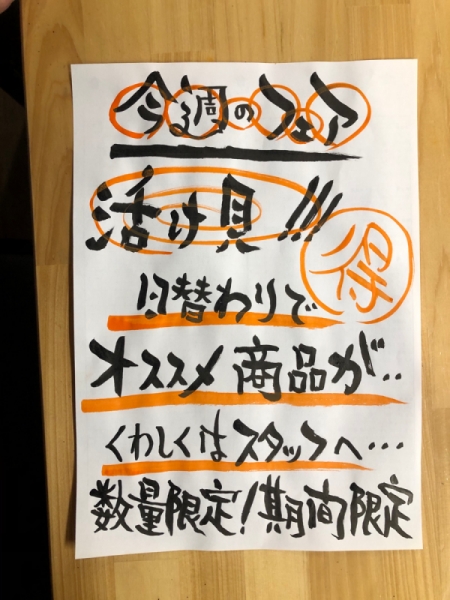 今週のフェア
活け貝!!!
祭
日替わりで
オススメ商品が‥
くわしくはスタッフへ…
数量限定!期間限定